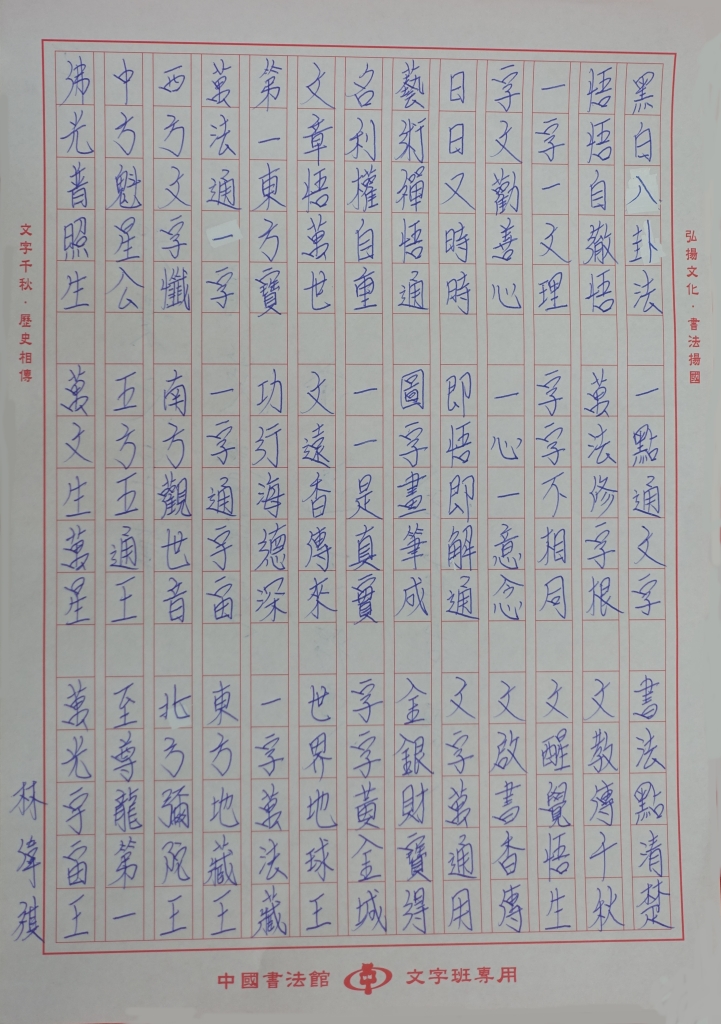 弘揚文化·書法揚國
黑白入卦法 一點通文字 書法點清楚
悟悟自徹悟 萬法修字根 文教傳千秋
一字一文理 字字不相同 文醒覺悟生
字文勸善心 一心一意念 文啟書香傳
日日又時時 即悟即解通 文字萬通用
藝術禪悟通 圖字畫筆成 金銀財寶得
名利權自重 一一是真寶 字字黃金城
文章悟萬世 文遠香傳來 世界地球王
第一東方寶 功行海德深 一字萬法藏
萬法通一字 一字通字宙 東方地藏王
西方文字懺 南方觀世音 北方彌陀王
中方魁星公 五方五通王 至尊龍第一
佛光普照生 萬文生萬星 萬光字宙王
林
文字千秋·歷史相傳
中國書法館 文字班專用